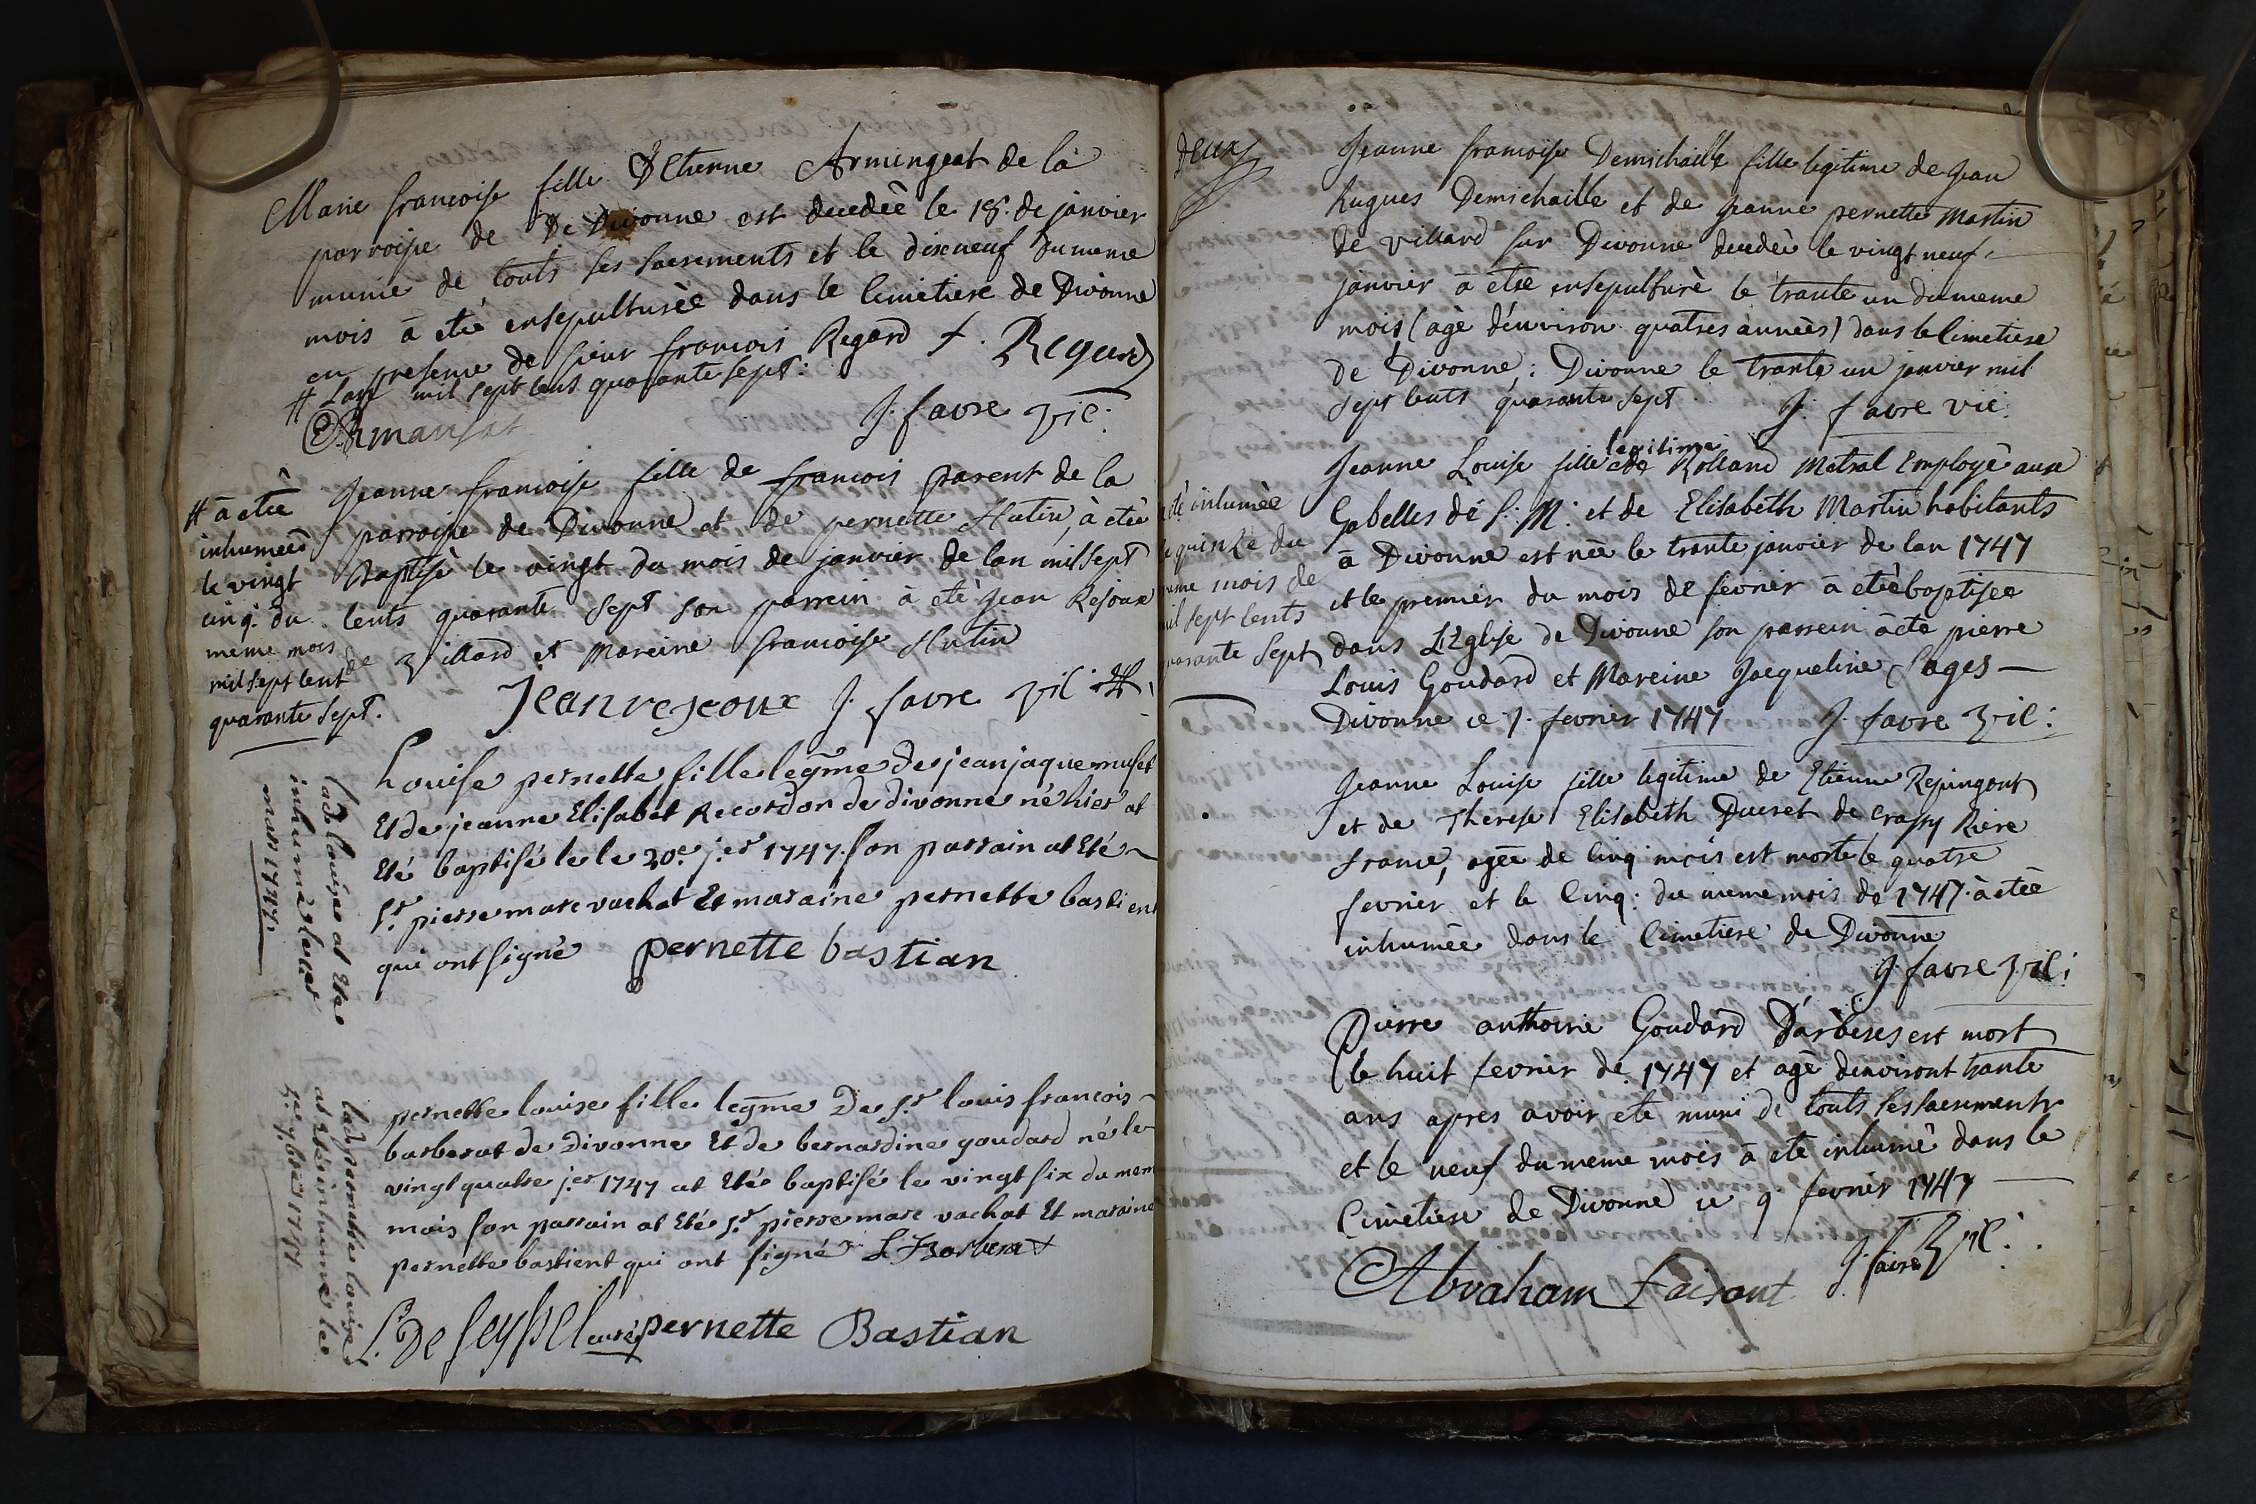 Marie francoise fille D'Etienne Armingeat de la
parroisse de De Divonne est decedèe le 18. de janvier
munie de touts ses sacrements et le dixneuf du meme
mois à etè ensepulturèe dans le Cimetiere de Divonne
en presence de sieur francois Regard +. Regard
# Lan mil sept cents quarante sept:
Armansat J. favre vic:
Jeanne francoise fille de francois parent de la
parroisse de Divonne et de pernette Hutin, à etè
Baptisè le vingt du mois de janvier de lan mil sept
cents quarante sept son parrein à etè Jean Rejoux
de villard et Mareine francoise Hutin
Jean rejeoux J. favre vic #
# à etèe
inhumèe
le vingt
cinq: du
meme mois
mil sept cent
quarante sept.
Louise pernette fille legme de jean jaque muset
Et de jeanne Elisabet Recordon de divonne né hier at
Eté baptisé le le 20e jer 1747. son parrain at Eté
Sr. pierre marc vachat Et maraine pernette bastient
qui ont signé pernette bastian
ladte louise at Ete
inhumé le
mar 1747
pernette louise fille legme De sr louis francois
barberat de Divonne Et de bernardine goudard né le
vingt quatre jer 1747 at Eté baptisé le vingt six du mem
mois son parrain at Eté sr. pierre marc vachat Et maraine
pernette bastient qui ont signé L Barberat
S. De Seyssel curé pernette Bastian
ladte pernette louise
at Eté inhumé le
7bre 1747
deux
Jeanne francoise Demichaille fille legitime de Jean
hugues Demichaille et de Jeanne pernette Martin
de villard sur Divonne decedèe le vingt neuf
janvier à etè ensepulturè le trante un du meme
mois (agè d'environ quatres annèes) dans le Cimetiere
de Divonne; Divonne le trante un janvier mil
sept cents quarante sept J. favre vic:
Jeanne Louise fille legitime de Rolland Metral Employè aux
Gabelles de S: M: et de Elisabeth Martin habitants
à Divonne est nèe le trante janvier de lan 1747
et le premier du mois de fevrier à etè baptisee
dans L'Eglise de Divonne son parrein à etè pierre
Louis Goudard et Mareine Jacqueline Sages
Divonne ce 1. fevrier 1747 J. favre vic:
etè inhumèe
le quinze du
meme mois de
mil sept cents
quarante sept
Jeanne Louise fille legitime de Etienne Repingont
et de Therese Elisabeth Ducret de crassy Riere
france, agèe de cinq mois est morte le quatre
fevrier et le cinq: du meme mois de 1747 à etèe
inhumèe dans le Cimetiere de Divonne
J. favre vic:
Pierre anthoine Goudard D'arberes est mort
le huit fevrier de 1747 et agè denviront trante
ans apres avoir etè muni de touts ses sacrements
et le neuf du meme mois à etè inhumè dans le
Cimetiere de Divonne ce 9. fevrier 1747
J. favre vic:
Abraham faisant